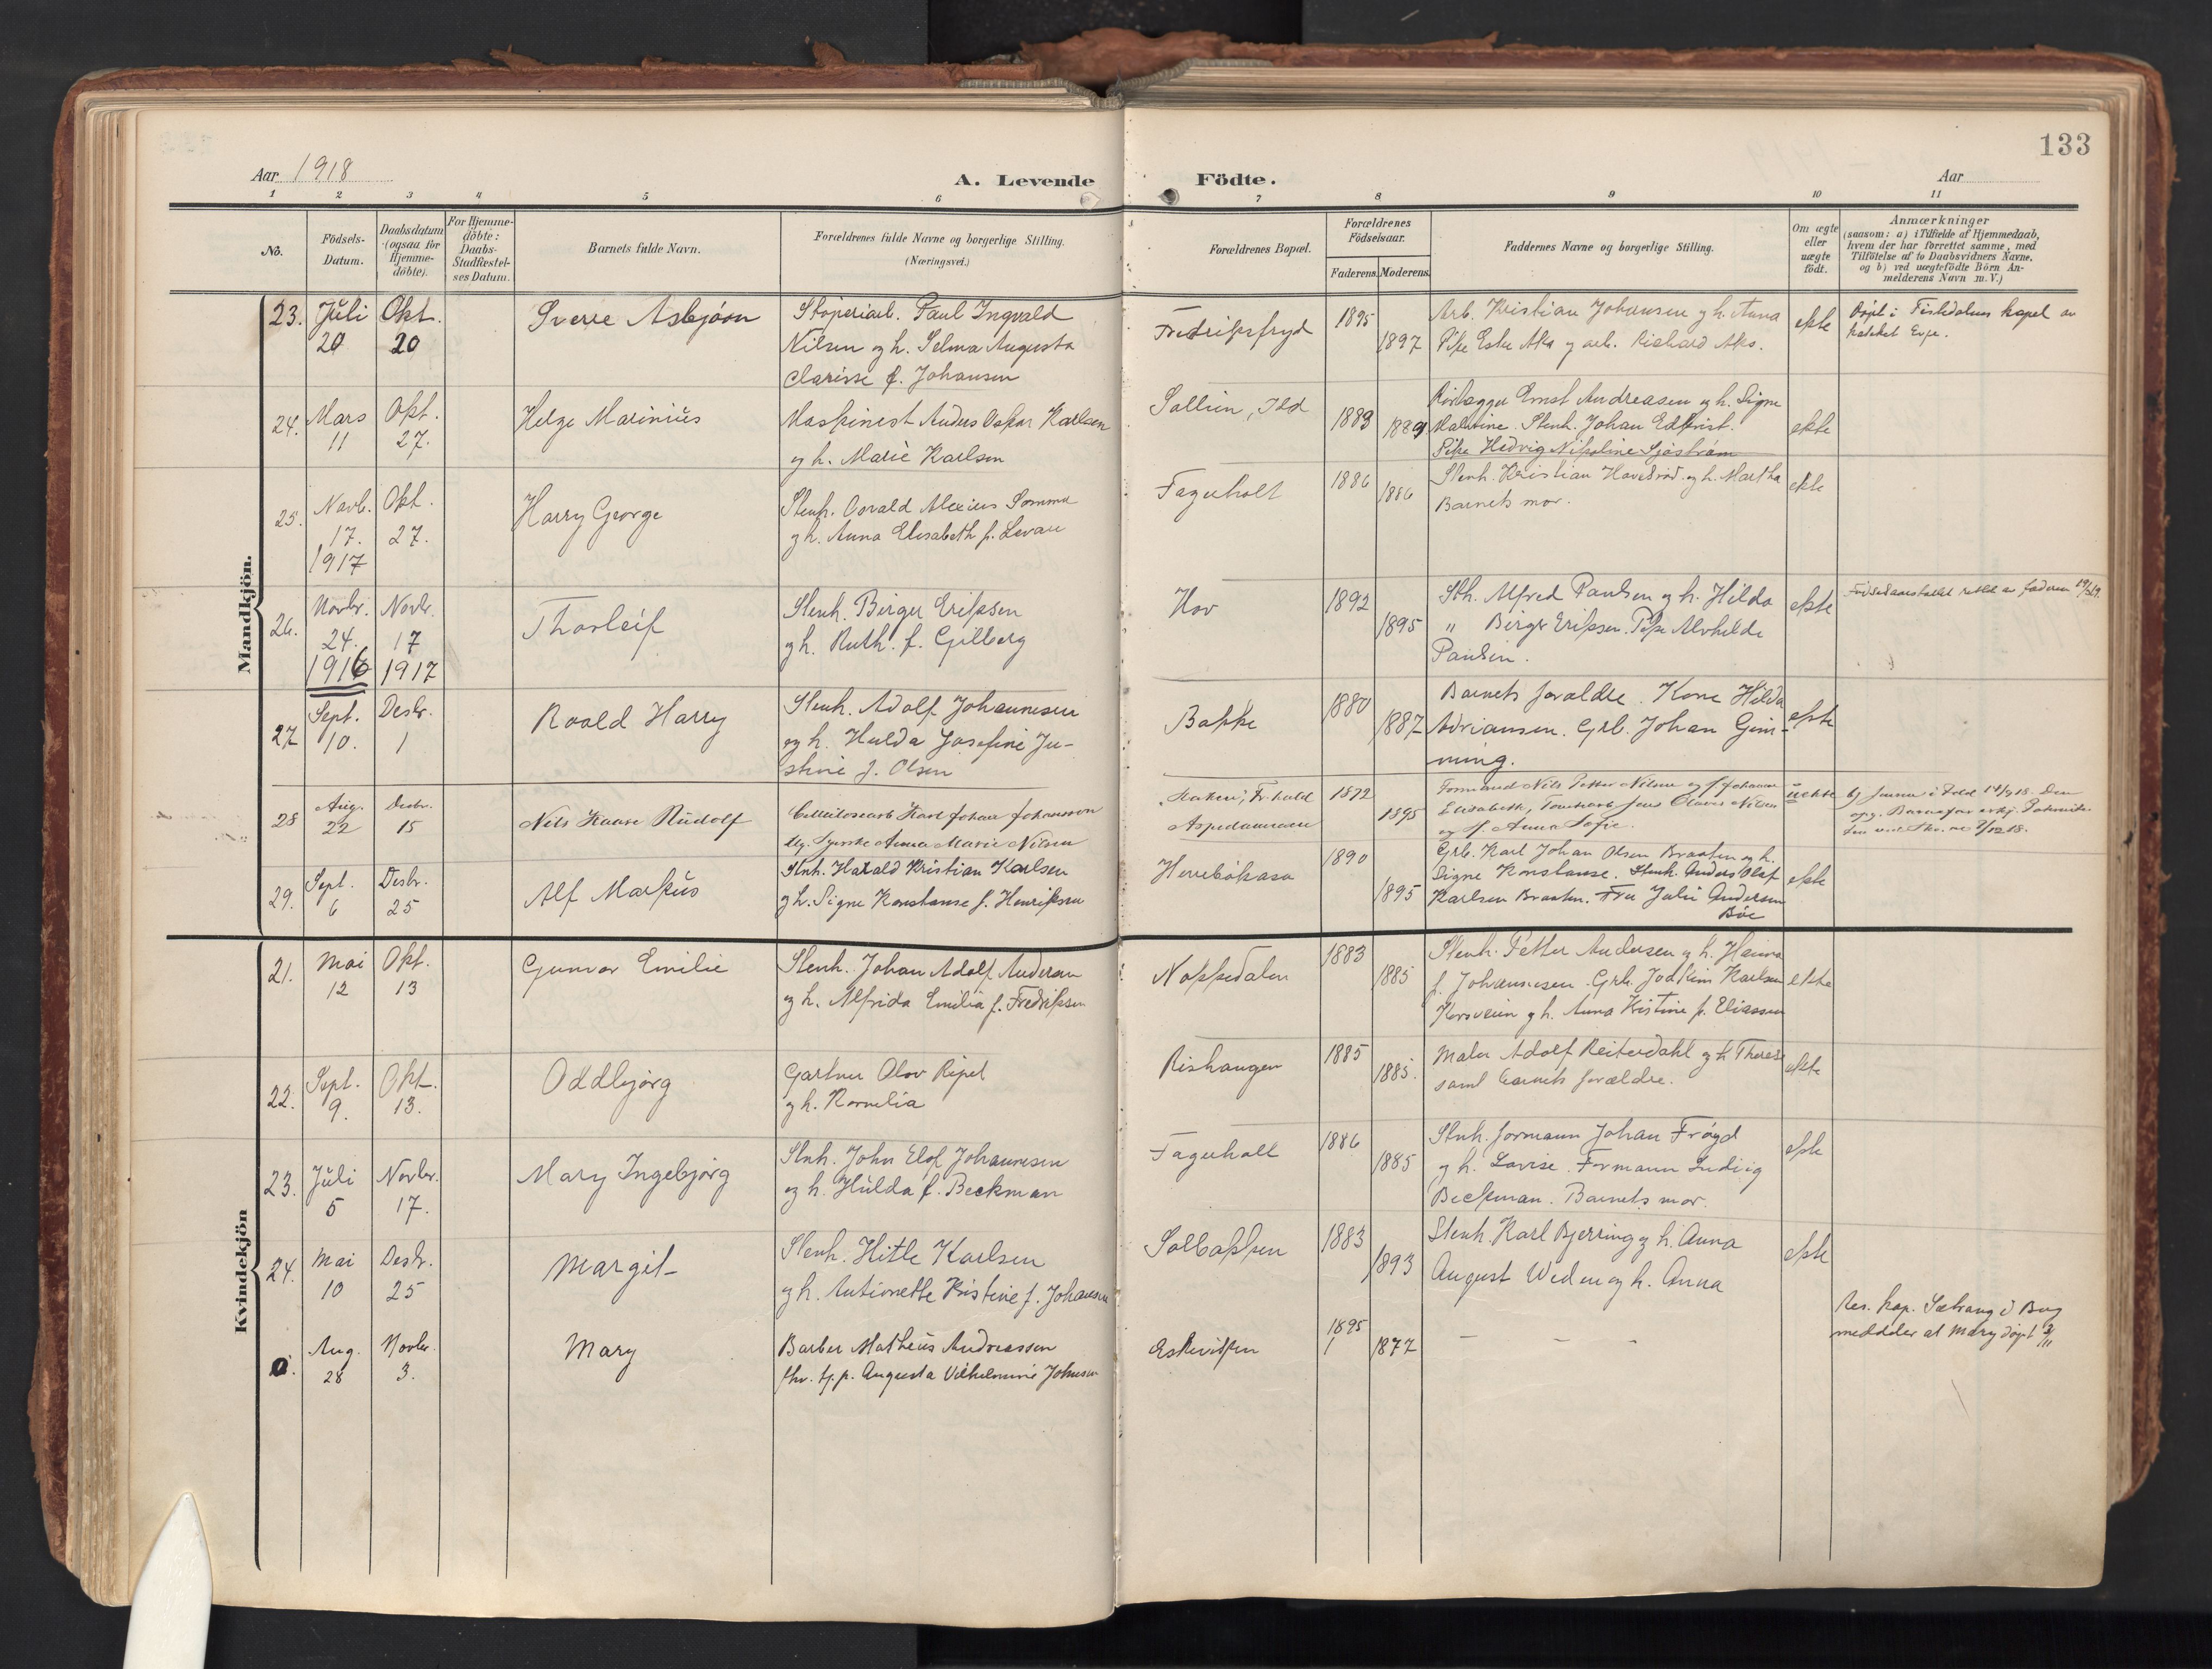 133
Aar 1918
A. Levende Födte.
Aar
1 2 3 4 5 6 7 8 9 10 11
No.
Födsels-Datum.
Daabsdatum (ogsaa for Hjemmedöbte).
For Hjemmedöbte: Daabs-Stadfæstelses Datum.
Barnets fulde Navn.
Forældrenes fulde Navne og borgerlige Stilling. (Næringsvei.)
Forældrenes Bopæl.
Forældrenes Födselsaar.
Faderens. Moderens.
Faddernes Navne og borgerlige Stilling.
Om ægte eller uægte födt.
Anmærkninger
(saasom: a) i Tilfælde af Hjemmedaab,
hvem der har forrettet samme, med
Tilföielse af to Daabsvidners Navne,
og b) ved uægtefödte Börn An-
melderens Navn m. V.)
Mandkjön.
23. Juli 20 Okt. 20 Sverre Asbjörn
Stöperiarb. Paul Ingvald
Nilsen og h. Selma Augusta
Clarisse f. Johansen
Fredriksfryd 1895 1897
Arb. Kristian Johansen og h. Anna
Pike Ester Aks og arb. Richard Aks.
ekte
döpt i Tistedalens kapel av
24. Mars 11 Okt. 27. Helge Marinius
Maskinist Anders Oskar Karlsen
og h. Marie Karlsen
Sollien, Idd 1883 1889
Rörlegger Ernst Andreasen og h. Signe
Malvine. Stenh. Johan Edkvist.
Pike Hedvig Nikoline Sjöström
ekte
25. Novb. 17. 1917 Okt. 27. Harry George
Stenh. Osvald Alexius Somma
og h. Anna Elisabeth f. Levau
Fagerholt 1886 1886
Stenh. Kristian Havedröd og h. Martha
Barnets mor.
ekte
26. Novbr. 24. 1916 Novbr. 17 1917 Thorleif
Stenh. Birger Eriksen
og h. Ruth. f. Gillberg
Hov 1892 1895
Sth. Alfred Paulsen og h. Hilda
" Birger Eriksen. Pike Alvhilde
Paulsen.
ekte
Födselsaarstallet rettet av faderen
27 Sept. 10. Desbr. 1 Roald Harry
Stenh. Adolf Johannesen
og h. Hulda Josefine Ju-
stine f. Olsen
Bakke 1880 1887
Barnets forældre. Kone Hilda
Adriansen. Grb. Johan Gim-
ming.
ekte
28 Aug. 22 Desbr. 15 Nils Kaare Rudolf
Cellulosearb Karl Johan Johansson
Ug. Syerske Anna Marie Nilsen
Fr.hald
Aspedammen 1872 1895
Formand Nils Petter Nilsen og h Johanne
Elisabeth, Tomtearb Jens Olaves Nilsen
og h. Anna Sofie.
uekte
29. Sept. 6 Desbr. 25 Alf Markus
Stnh. Harald Kristian Karlsen
og h. Signe Konstanse f. Henriksen
Herrebökasa 1890 1895
Grb. Karl Johan Olsen Braaten og h.
Signe Konstanse. Stenh. Anders Olaf
Karlsen Braaten. Fru Julie Andersen
Böe
ekte
Kvindekjön
21. Mai 12 Okt. 13 Gunvor Emilie
Stenh. Johan Adolf Andersen
og h. Alfrida Emilia f. Fredriksen
Nokkedalen 1883 1885
Stenh. Petter Andersen og h. Hanna
f. Johannesen. Grb. Joakim Karlsen
Korsveien og h. Anna Kristine f. Eliassen
ekte
22. Sept. 9. Okt. 13. Oddbjörg
Gartner Olav Ripel
og h. Kornelia
Rishaugen 1885 1885.
Maler Adolf Reiterdahl og h Therese
samt barnets forældre.
ekte
23. Juli 5 Novbr. 17. Mary Ingebjörg
Stnh. John Elof Johannesen
og h. Hulda f. Beckman
Fagerholt 1886 1885
Stnh. formann Johan Fröyd
og h. Lovise. Formann Ludvig
Beckman. Barnets mor.
ekte
24. Mai 10 Desbr. 25 Margit
Stenh. Hitle Karlsen
og h. Antionette Kristine f. Johansen
Solbakken 1883 1893
Stenh. Karl Bjerring og h. Anna
August Weden og h. Anna
ekte
0. Aug. 28 Novbr. 3. Mary
Barber Matheus Andreassen
fhv. tj.p. Augusta Vilhelmine Johnsen
Eskevikken 1895 1877
— — —
Res. kap. Sætrang i Berg
meddeler at Mary döpt 3/11